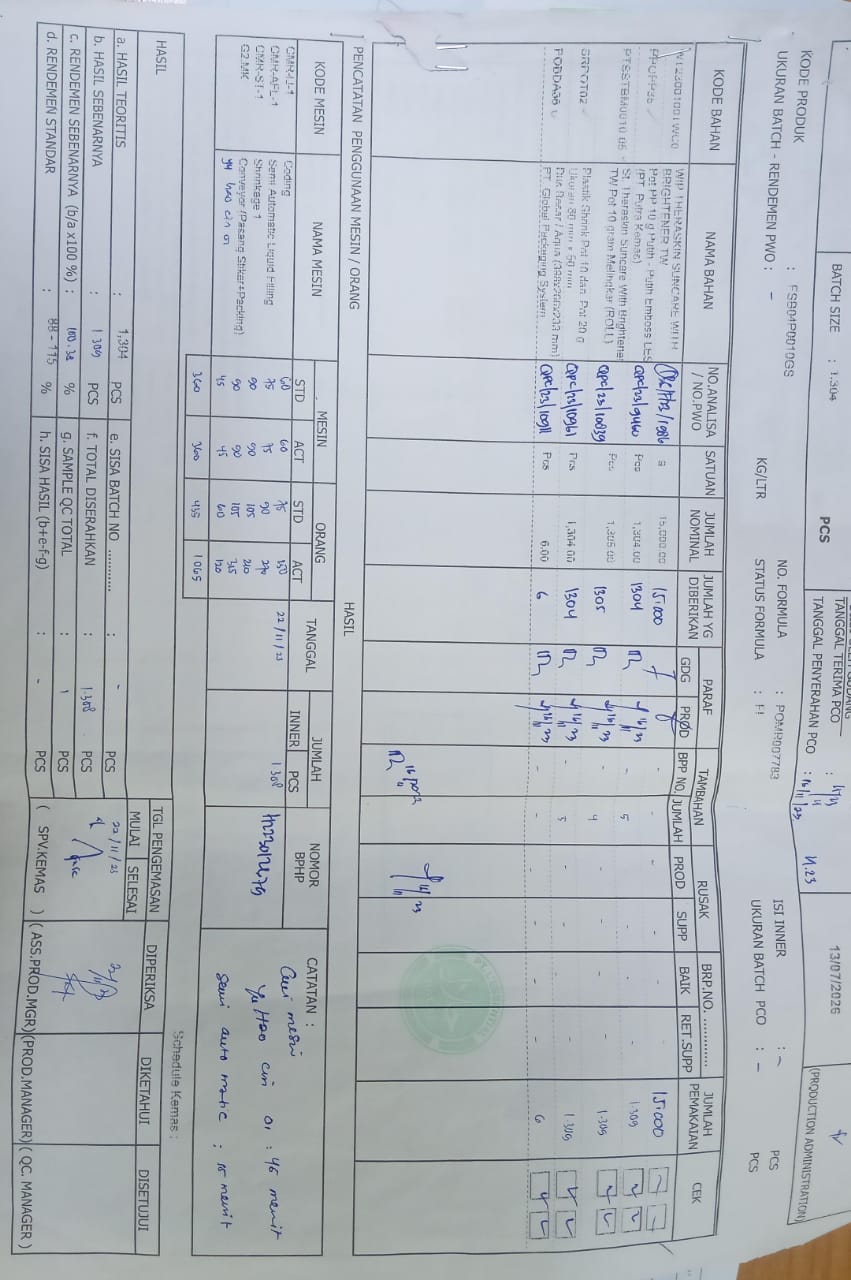 BATCH SIZE : 1,304 PCS
TANGGAL TERIMA PCO :
TANGGAL PENYERAHAN PCO : 16/11/23
13/07/2026
(PRODUCTION ADMINISTRATION)
KODE PRODUK : FSB04P0010GS
NO. FORMULA : POMR007783
ISI INNER : - PCS
UKURAN BATCH - RENDEMEN PWO : - KG/LTR
STATUS FORMULA :
UKURAN BATCH PCO : - PCS
KODE BAHAN NAMA BAHAN NO.ANALISA / NO.PWO SATUAN JUMLAH NOMINAL JUMLAH YG DIBERIKAN PARAF GDG PROD TAMBAHAN BPP NO. JUMLAH RUSAK PROD SUPP BRP.NO. ............ BAIK RET.SUPP JUMLAH PEMAKAIAN CEK
WIP THERASKIN SUNCARE WITH BRIGHTENER TW 15,000.00 15.000 15.000
Pot PP 10 g Putih - Putih Emboss LES (PT. Putra Kemas) QPC/23/9460 Pcs 1,304.00 1304 5 1.309
St. Theraskin Suncare With Brightener TW Pot 10 gram Melingkar (ROLL) QPC/23/10839 Pcs 1,305.00 1305 4 1.309
SRPOT02 Plastik Shrink Pot 10 dan Pot 20 g QPC/23/10961 Pcs 1,304.00 1304 5 1.309
PT. Global Packaging System QPC/23/10911 Pcs 6.00 6 - - 6
PENCATATAN PENGGUNAAN MESIN / ORANG
HASIL
KODE MESIN NAMA MESIN MESIN STD ACT ORANG STD ACT TANGGAL JUMLAH INNER PCS NOMOR BPHP
Coding 60 60 75 22/11/23 1.308
Semi Automatic Liquid Filling 75 75 90 270
Shrinkage 1 90 90 105 210
G2.MK Conveyor (Pasang Stiker+Packing) 90 90 105 315
yu hao cin 01 45 45 60 120
360 360 435 1065
CATATAN :
Cuci mesin
Yu Hao cin 01 : 45 menit
Semi auto matic : 15 menit
Schedule Kemas :
HASIL
a. HASIL TEORITIS : 1,304 PCS
b. HASIL SEBENARNYA : 1.309 PCS
c. RENDEMEN SEBENARNYA (b/a x100 %) : 100.38 %
d. RENDEMEN STANDAR : 88 - 115 %
e. SISA BATCH NO ........... : - PCS
f. TOTAL DISERAHKAN : 1.308 PCS
g. SAMPLE QC TOTAL : 1 PCS
h. SISA HASIL (b+e-f-g) : - PCS
TGL PENGEMASAN DIPERIKSA DIKETAHUI DISETUJUI
MULAI SELESAI
22/11/23
( SPV.KEMAS ) ( ASS.PROD.MGR) (PROD.MANAGER) ( QC. MANAGER )